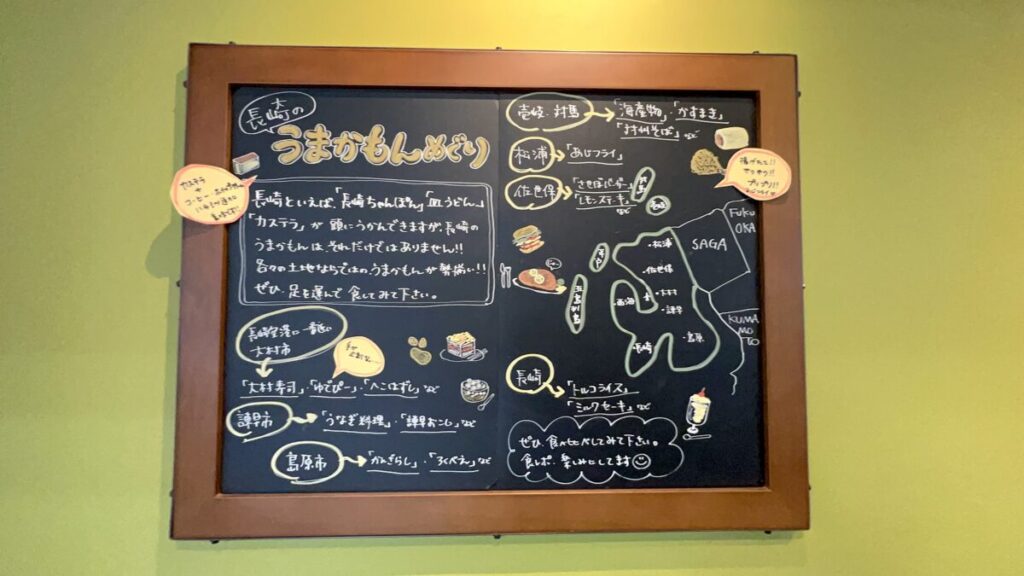 長崎の
うまかもんめぐり
長崎といえば、「長崎ちゃんぽん」「皿うどん」、
「カステラ」が頭にうかんできますが、長崎の
うまかもんは、それだけではありません!!
各々の土地ならではのうまかもんが勢揃い!!
ぜひ、足を運んで食してみて下さい。
長崎空港に一番近い
大村市
「大村寿司」・「ゆでぴー」・「へこはずし」など
諫早市
「うなぎ料理」・「諫早おこし」など
島原市
「かんざらし」・「ろくべえ」など
壱岐・対馬
「海産物」・「かすまき」
「対州そば」など
松浦
「あじフライ」
佐世保
「させぼバーガー」
「レモンステーキ」
など
揚げたて!!
サクサク!!
プリプリ!!
カステラ
+
コーヒー
FUKU
OKA
SAGA
KUMA
MOTO
・松浦
・佐世保
西海
・大村
・諫早
・島原
・長崎
五島列島
長崎
「トルコライス」
「ミルクセーキ」など
ぜひ、食べ比べしてみて下さい。
食レポ、楽しみにしてます